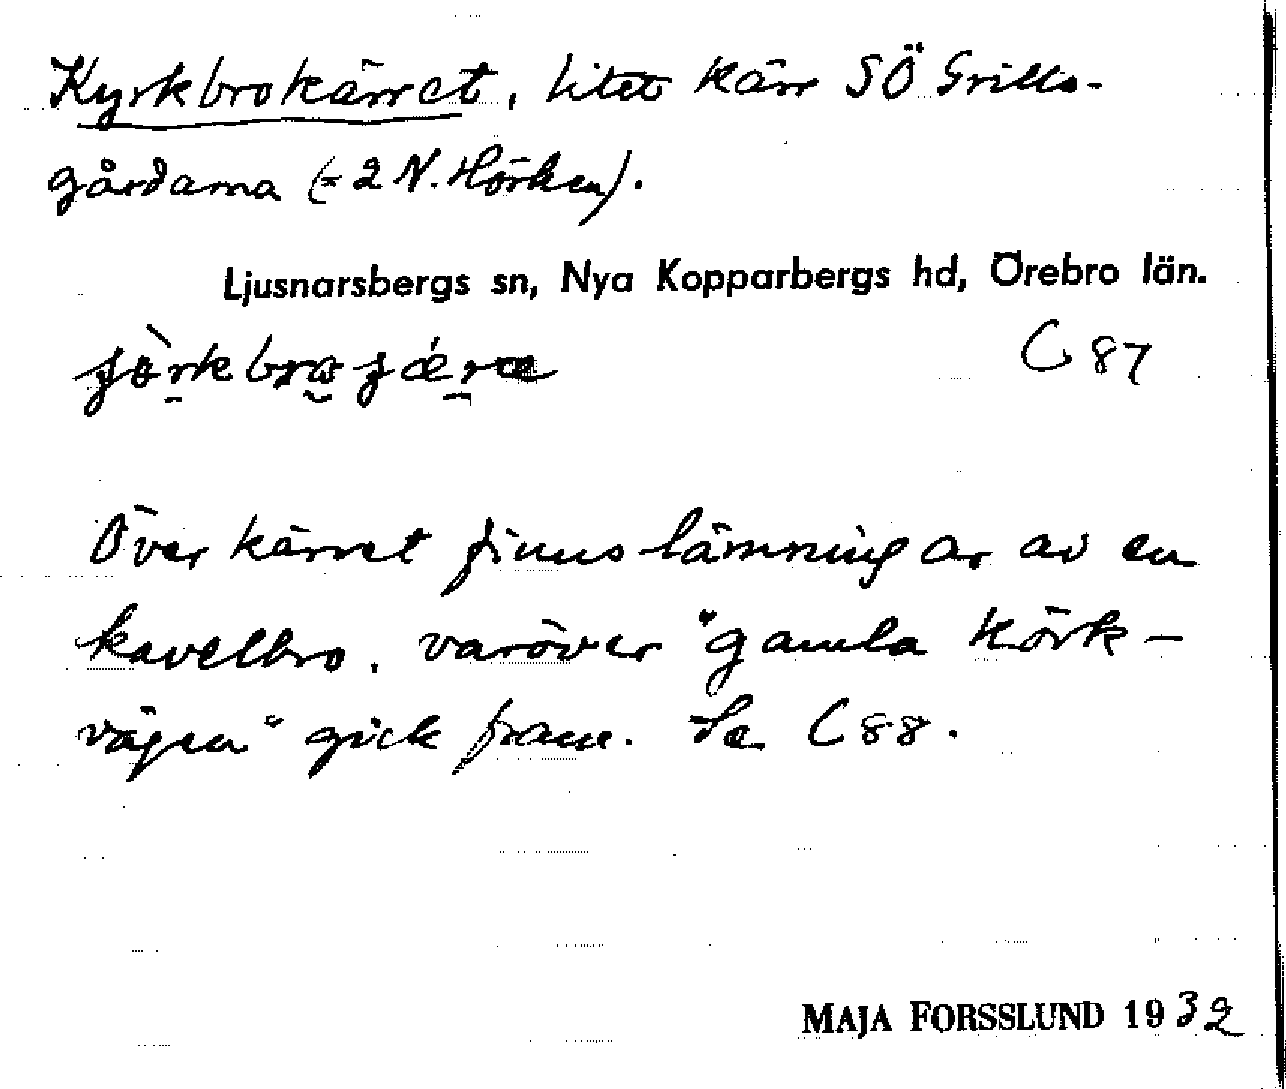 Kyrkbrokärret, litet kärr SÖ Grills-
gårdarna (= 2 N. Hörken).
Ljusnarsbergs sn, Nya Kopparbergs hd, Örebro län.
C 87
Över kärret finns lämningar av en
kavelbro, varöver "gamla körk-
vägen" gick fram. Se C 88.
MAJA FORSSLUND 1932